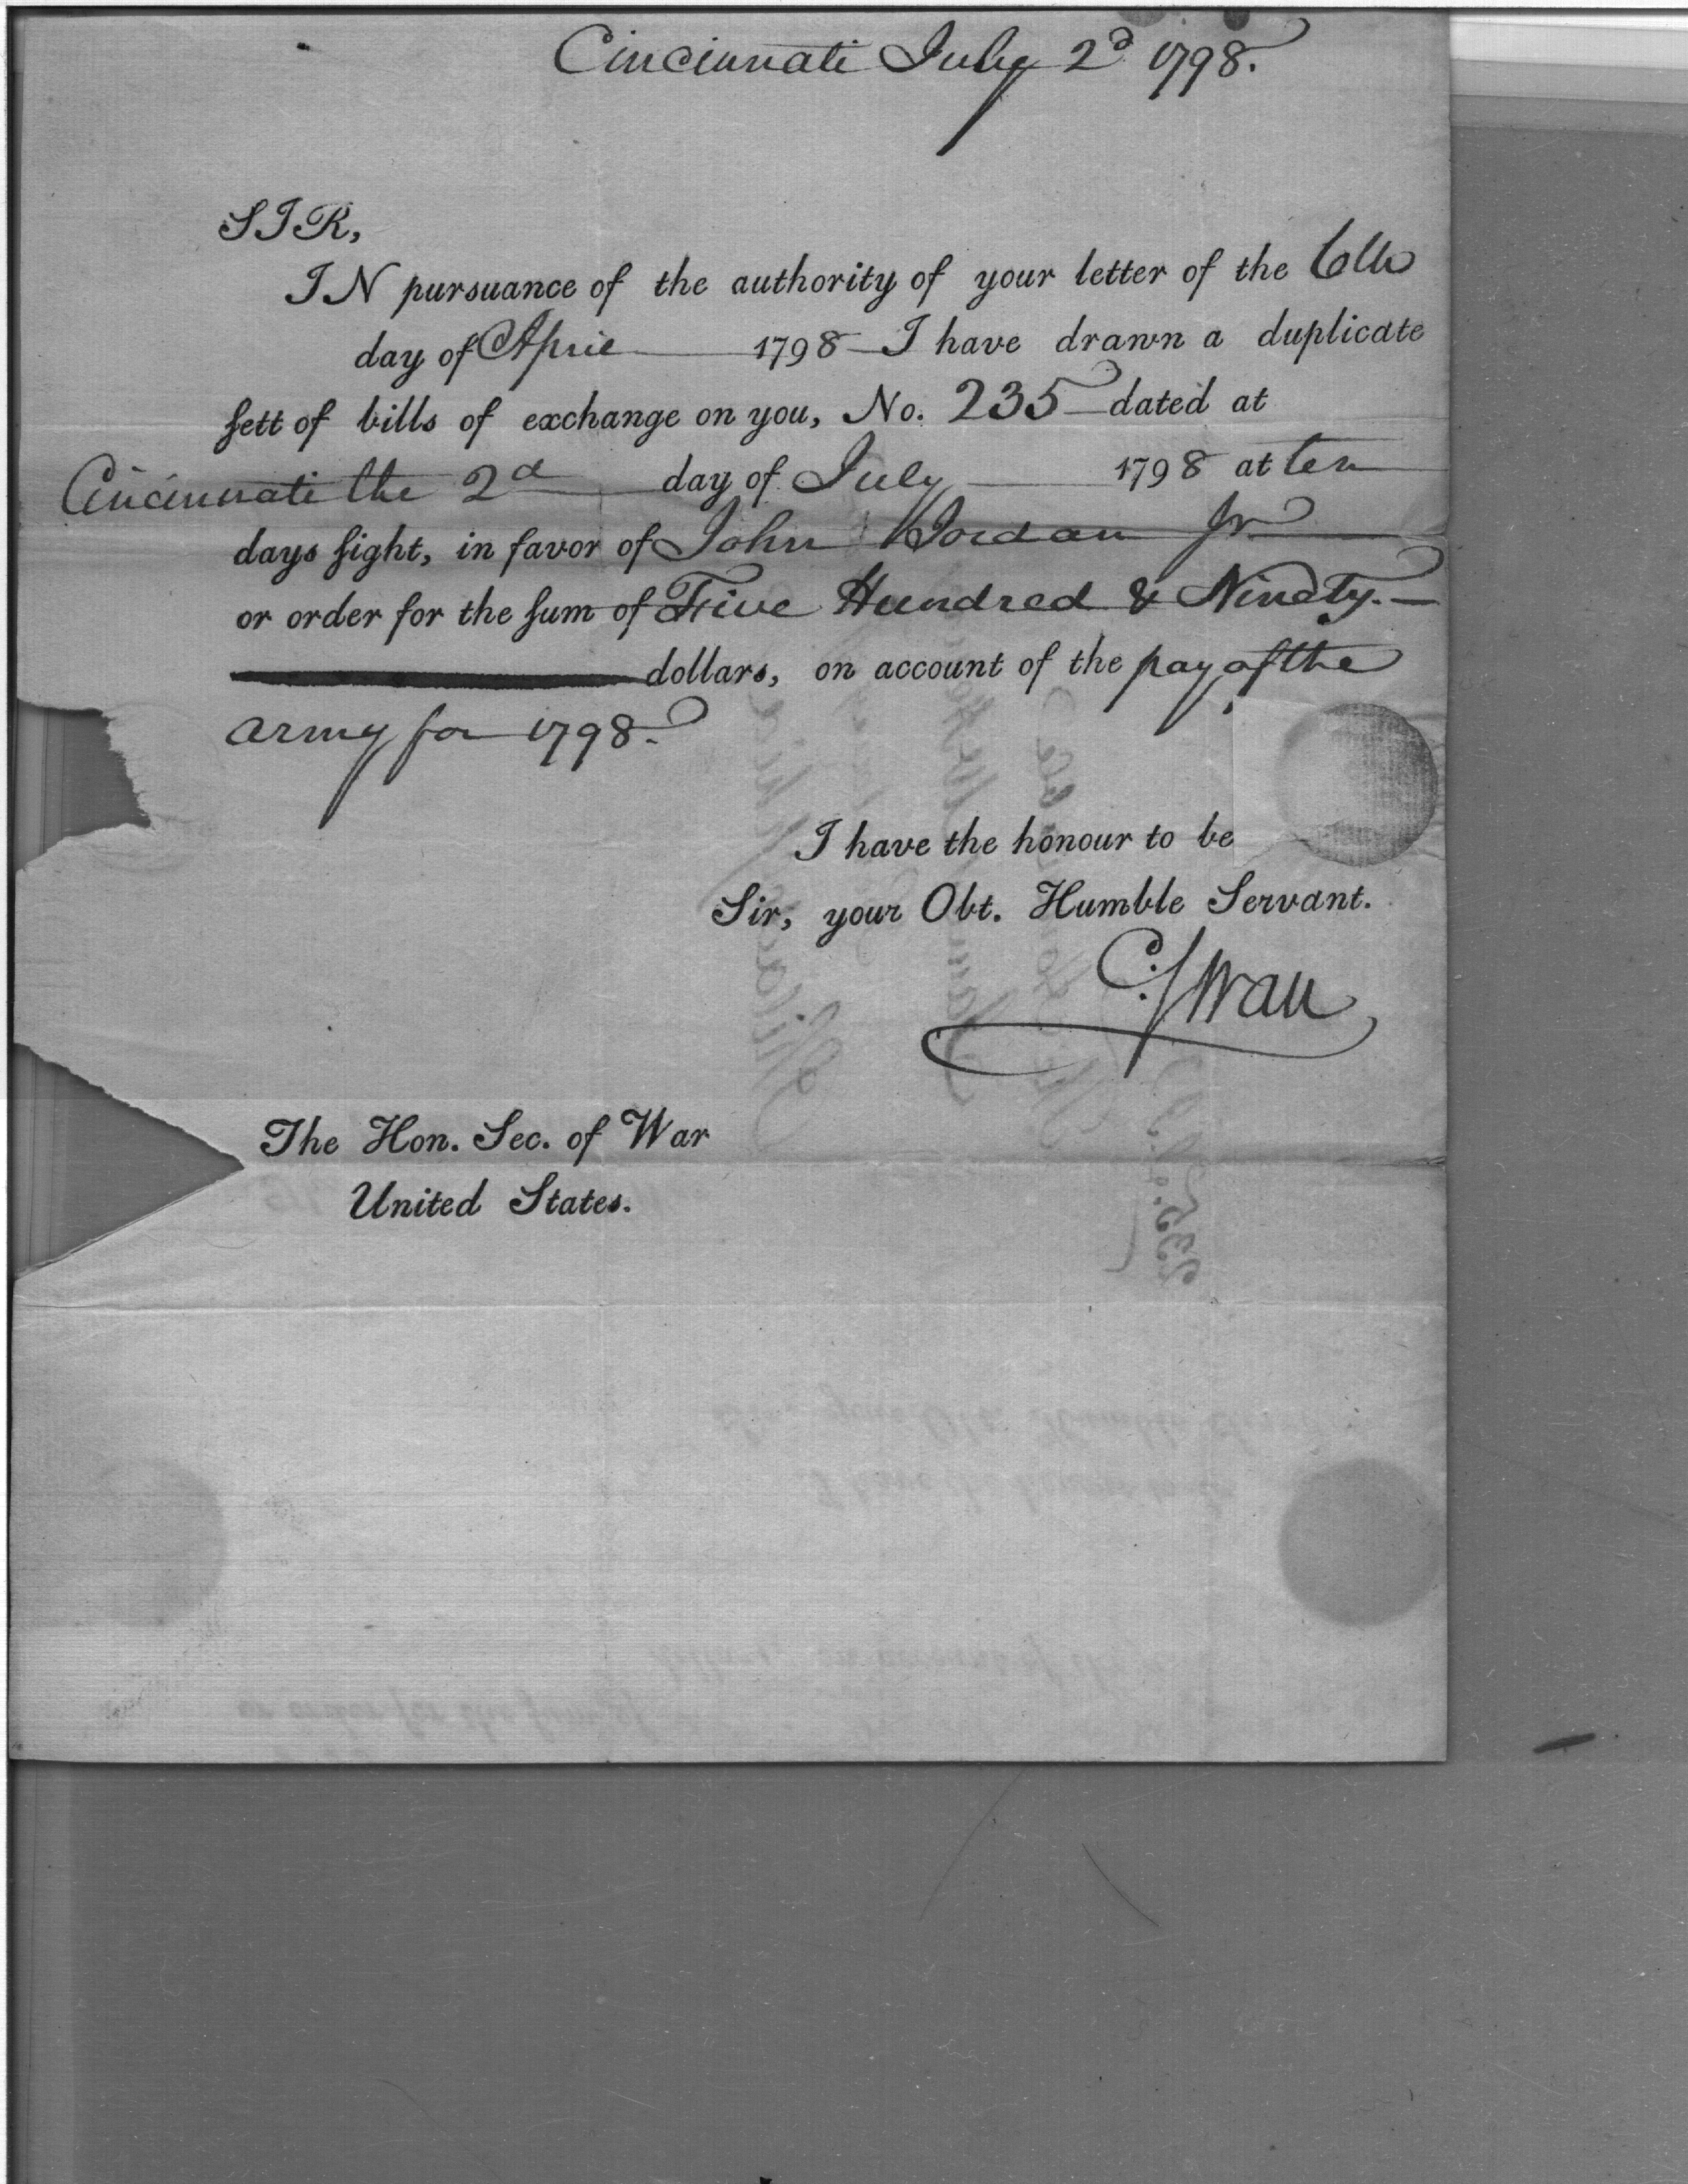 Cincinnati July 2d 1798.
SIR,
IN pursuance of the authority of your letter of the 6th
day of April 1798 I have drawn a duplicate
sett of bills of exchange on you, No. 235 dated at
Cincinnati the 2d day of July 1798 at ten
days sight, in favor of John Jordan Jr
or order for the sum of Five Hundred & Ninety.
dollars, on account of the pay of the
army for 1798.
I have the honour to be
Sir, your Obt. Humble Servant.
C. Swan
The Hon. Sec. of War
United States.